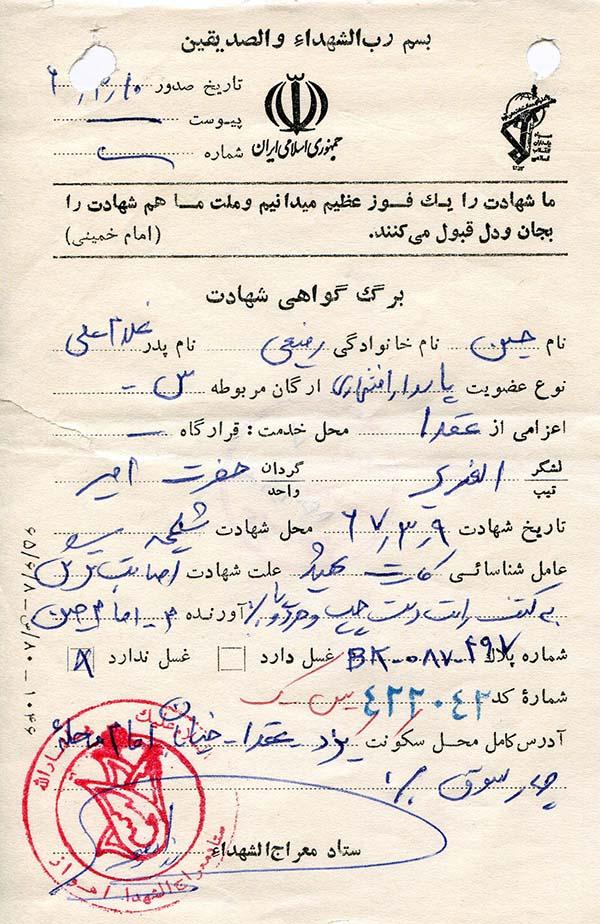 بسم رب الشهداء والصدیقین
تاریخ صدور
پیوست
شماره
جمهوری اسلامی ایران
سپاه پاسداران انقلاب اسلامی
ما شهادت را یك فوز عظیم میدانیم وملت مـا هم شهادت را
بجان ودل قبول می‌کنند. (امام خمینی)
برگ گواهی شهادت
نام حسین نام خانوادگی رفیعی نام پدر غلامعلی
نوع عضویت پاسدار افتخاری ارگان مربوطه س
اعزامی از عقدا محل خدمت: قرارگاه
لشگر تیپ الغدیر گردان واحد حضرت امیر
تاریخ شهادت ۶۷٫۳٫۹ محل شهادت شلمچه
عامل شناسائی کارت علت شهادت اصابت ترکش
به کتف راست دست چپ و هر دو پا آورنده امام حسین
شماره پلاك BK-087-297 غسل دارد غسل ندارد
شمارهٔ کد ۴۲۲۰۴۲
آدرس کامل محل سکونت یزد عقدا خیابان امام محله
چهارسوق
ستاد معراج الشهداء
ستاد معراج الشهدا اهواز
۱۰۴۶ – ۸۰/س – ۶۵/۶/۸